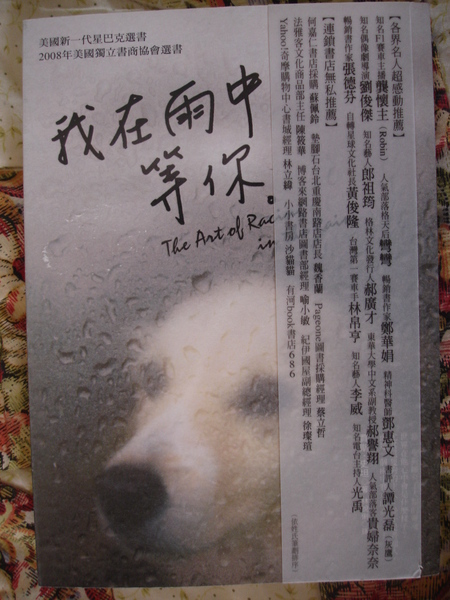 美國新一代星巴克選書
2008年美國獨立書商協會選書
我在雨中
等你。
The Art of Rac
in
【各界名人超感動推薦】
知名F1賽車主播龔懷主(Robin) 人氣部落格天后彎彎 暢銷書作家鄭華娟 精神科醫師鄧惠文 書評人譚光磊(灰鷹)
知名偶像劇導演劉俊傑 知名藝人郎祖筠 格林文化發行人郝廣才 東華大學中文系副教授郝譽翔 人氣部落客貴婦奈奈
暢銷書作家張德芬 自轉星球文化社長黃俊隆 台灣第一賽車手林帛亨 知名藝人李威 知名電台主持人光禹
【連鎖書店無私推薦】
何嘉仁書店採購 蘇佩鈴 墊腳石台北重慶南路店店長 魏香蘭 Pageone圖書採購經理 蔡立哲
法雅客文化商品部主任 陳筱華 博客來網路書店圖書部經理 喻小敏 紀伊國屋副總經理 徐璨瑄
Yahoo!奇摩購物中心書城經理 林立緯 小小書房 沙貓貓 有河book書店 686
(依姓氏筆劃順序)